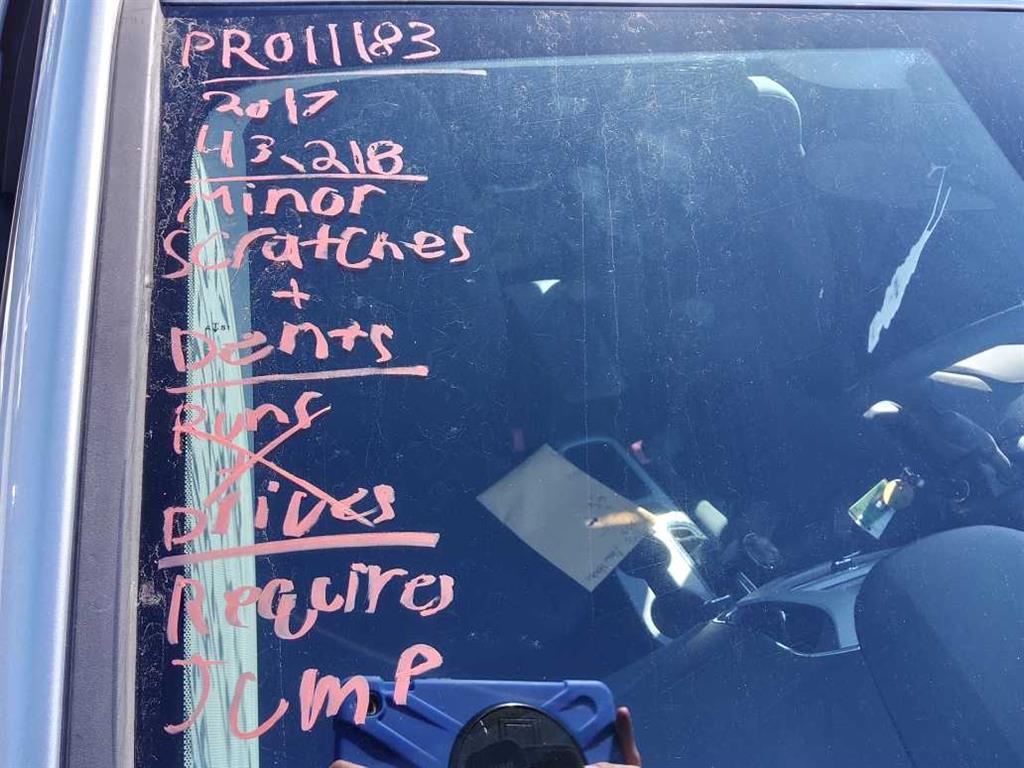 PRO11183
2017
43,218
Minor
Scratches
+
Dents
Runs
+
Drives
Requires
Jump